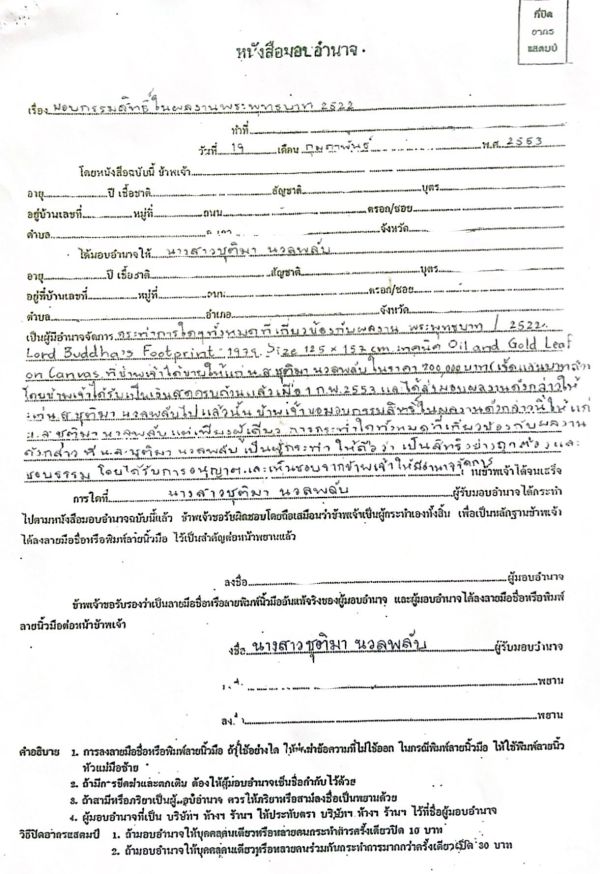 ที่ปิด
อากร
แสตมป์
หนังสือมอบอำนาจ.
เรื่อง มอบกรรมสิทธิ์ในผลงานพระพุทธบาท 2522
ทำที่
วันที่ 19 เดือน กุมภาพันธ์ พ.ศ. 2553
โดยหนังสือฉบับนี้ ข้าพเจ้า
อายุ ปี เชื้อชาติ สัญชาติ บุตร
อยู่บ้านเลขที่ หมู่ที่ ถนน ตรอก/ซอย
ตำบล จังหวัด
ได้มอบอำนาจให้ นางสาวชุติมา นวลพลับ
อายุ ปี เชื้อชาติ สัญชาติ บุตร
อยู่ที่บ้านเลขที่ หมู่ที่ ถนน ตรอก/ซอย
ตำบล อำเภอ จังหวัด
เป็นผู้มีอำนาจจัดการ กระทำการใดๆทั้งหมดที่เกี่ยวข้องกับผลงาน พระพุทธบาท / 2522.
Lord Buddha's Footprint. 1979. Size 125 x 157 cm เทคนิค Oil and Gold Leaf
on Canvas. ที่ข้าพเจ้าได้ขายให้แก่ น.ส.ชุติมา นวลพลับ ในราคา 700,000 บาท (เจ็ดแสนบาทถ้วน)
โดยข้าพเจ้าได้รับเป็นเงินสดครบถ้วนแล้วเมื่อ 1 ก.พ. 2553 และได้ส่งมอบผลงานดังกล่าวให้
แก่ น.ส.ชุติมา นวลพลับไปแล้วนั้น ข้าพเจ้าขอมอบกรรมสิทธิ์ในผลงานดังกล่าวนี้ให้แก่
น.ส.ชุติมา นวลพลับ แต่เพียงผู้เดียว การกระทำใดทั้งหมดที่เกี่ยวข้องกับผลงาน
ดังกล่าว ที่ น.ส.ชุติมา นวลพลับ เป็นผู้กระทำ ให้ถือว่า เป็นสิทธิ์อย่างถูกต้อง และ
ชอบธรรม โดยได้รับการอนุญาต และเห็นชอบจากข้าพเจ้าให้มีอำนาจจัดการ แทนข้าพเจ้าได้จนเสร็จ
การใดที่ นางสาวชุติมา นวลพลับ ผู้รับมอบอำนาจได้กระทำ
ไปตามหนังสือมอบอำนาจฉบับนี้แล้ว ข้าพเจ้าขอรับผิดชอบโดยถือเสมือนว่าข้าพเจ้าเป็นผู้กระทำเองทั้งสิ้น เพื่อเป็นหลักฐานข้าพเจ้า
ได้ลงลายมือชื่อหรือพิมพ์ลายนิ้วมือ ไว้เป็นสำคัญต่อหน้าพยานแล้ว
ลงชื่อ ผู้มอบอำนาจ
ข้าพเจ้าขอรับรองว่าเป็นลายมือชื่อหรือลายพิมพ์นิ้วมืออันแท้จริงของผู้มอบอำนาจ และผู้มอบอำนาจได้ลงลายมือชื่อหรือพิมพ์
ลายนิ้วมือต่อหน้าข้าพเจ้า
ลงชื่อ นางสาวชุติมา นวลพลับ ผู้รับมอบอำนาจ
พยาน
พยาน
คำอธิบาย 1. การลงลายมือชื่อหรือพิมพ์ลายนิ้วมือ ถ้าใช้อย่างใด ให้ขีดฆ่าข้อความที่ไม่ใช้ออก ในกรณีพิมพ์ลายนิ้วมือ ให้ใช้พิมพ์ลายนิ้ว
หัวแม่มือซ้าย
2. ถ้ามีการขีดฆ่าและตกเติม ต้องให้ผู้มอบอำนาจเซ็นชื่อกำกับไว้ด้วย
3. ถ้าสามีหรือภริยาเป็นผู้มอบอำนาจ ควรให้ภริยาหรือสามีลงชื่อเป็นพยานด้วย
4. ผู้มอบอำนาจที่เป็น บริษัทฯ ห้างฯ ร้านฯ ให้ประทับตรา บริษัทฯ ห้างฯ ร้านฯ ไว้ที่ชื่อผู้มอบอำนาจ
วิธีปิดอากรแสตมป์ 1. ถ้ามอบอำนาจให้บุคคลคนเดียวหรือหลายคนกระทำการครั้งเดียวปิด 10 บาท
2. ถ้ามอบอำนาจให้บุคคลคนเดียวหรือหลายคนร่วมกันกระทำการมากกว่าครั้งเดียวปิด 30 บาท